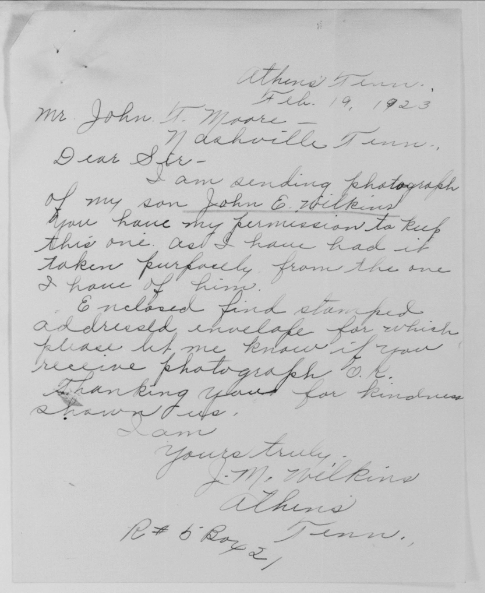 Athens Tenn.,
Feb. 19, 1923
Mr. John T. Moore -
Nashville Tenn.,
Dear Sir -
I am sending photograph
of my son John E. Wilkins
You have my permission to keep
this one as I have had it
taken purposely from the one
I have of him.
Enclosed find stamped
addressed envelope for which
please let me know if you
receive photograph O.K.
Thanking you for kindness
shown us.
I am
Yours truly.
J. M. Wilkins
Athens
Tenn.,
R # 5 Box 421